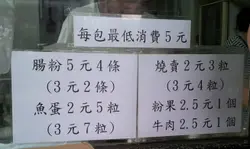 每包最低消費5元
腸粉5元4條
(3元2條)
魚蛋2元5粒
(3元7粒)
燒賣2元3粒
(3元4粒)
粉果2.5元1個
牛肉2.5元1個